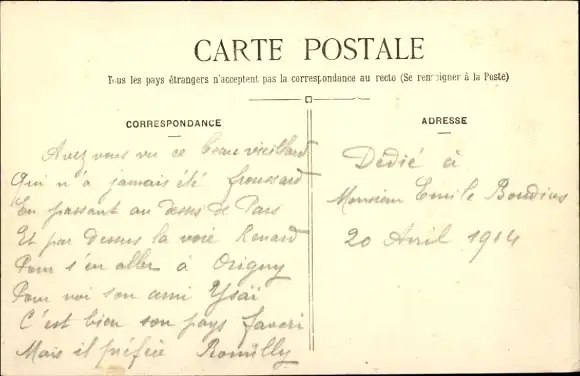 CARTE POSTALE
Tous les pays étrangers n'acceptent pas la correspondance au recto (Se renseigner à la Poste)
CORRESPONDANCE
Avez vous vu ce beau vieillard
Qui n'a jamais été froussard
En passant au dessus de Pars
Et par dessus la voie Renard
Pour s'en aller à Origny
Pour voir son ami Ysaï
C'est bien son pays favori
Mais il préfère Romilly
ADRESSE
Dédié à
Monsieur Emile
20 Avril 1914